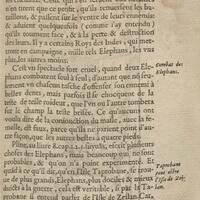 ne tient que de petits, qu'ils renversent les ba-
taillons, & passent sur le ventre de leurs ennemis:
& aduient quelquefois (comme i'ay entendu)
qu'ils tournent face, & à la perte & destruction
des leurs. Il y a certains Roys des Indes, qui met-
tent en campagne, mille tels Elephans, les vns
plus, les autres moins.
C'est vn spectacle fort cruel, quand deux Ele-
phans combattent seul à seul, d'autant que
vn chacun tasche d'offenser son ennemi à
belles dents, mais parfois il se choquent de la
teste de telle roideur, que l'vn ou l'autre tombe
sur le champ la teste brisee. Ce qu'aucuns ont
voulu dire de la conionction du masle, auec la fe-
melle, est faux, parce qu'ils ne parient point d'au-
tre façon, que les autres bestes à quatre pieds.
Pline, au liure 8. cap. 1. 2. escrit plusieurs
choses des Elephans, mais beaucoup qui ne sont
probables, & qu'on n'a point experimenté. Et
quoy à ce qu'il dit, qu'en l'Isle Taprobane, se trou-
ue de plus grands, Elephans, plus faciles & mieux
duicts à la guerre, cela est veritable, si par la Ta-
probane il entend parler de l'Isle de Zeilan. Car,
Combat des
Elephans.
Taprobane
pour estre
l'Isle de Zei-
lan.